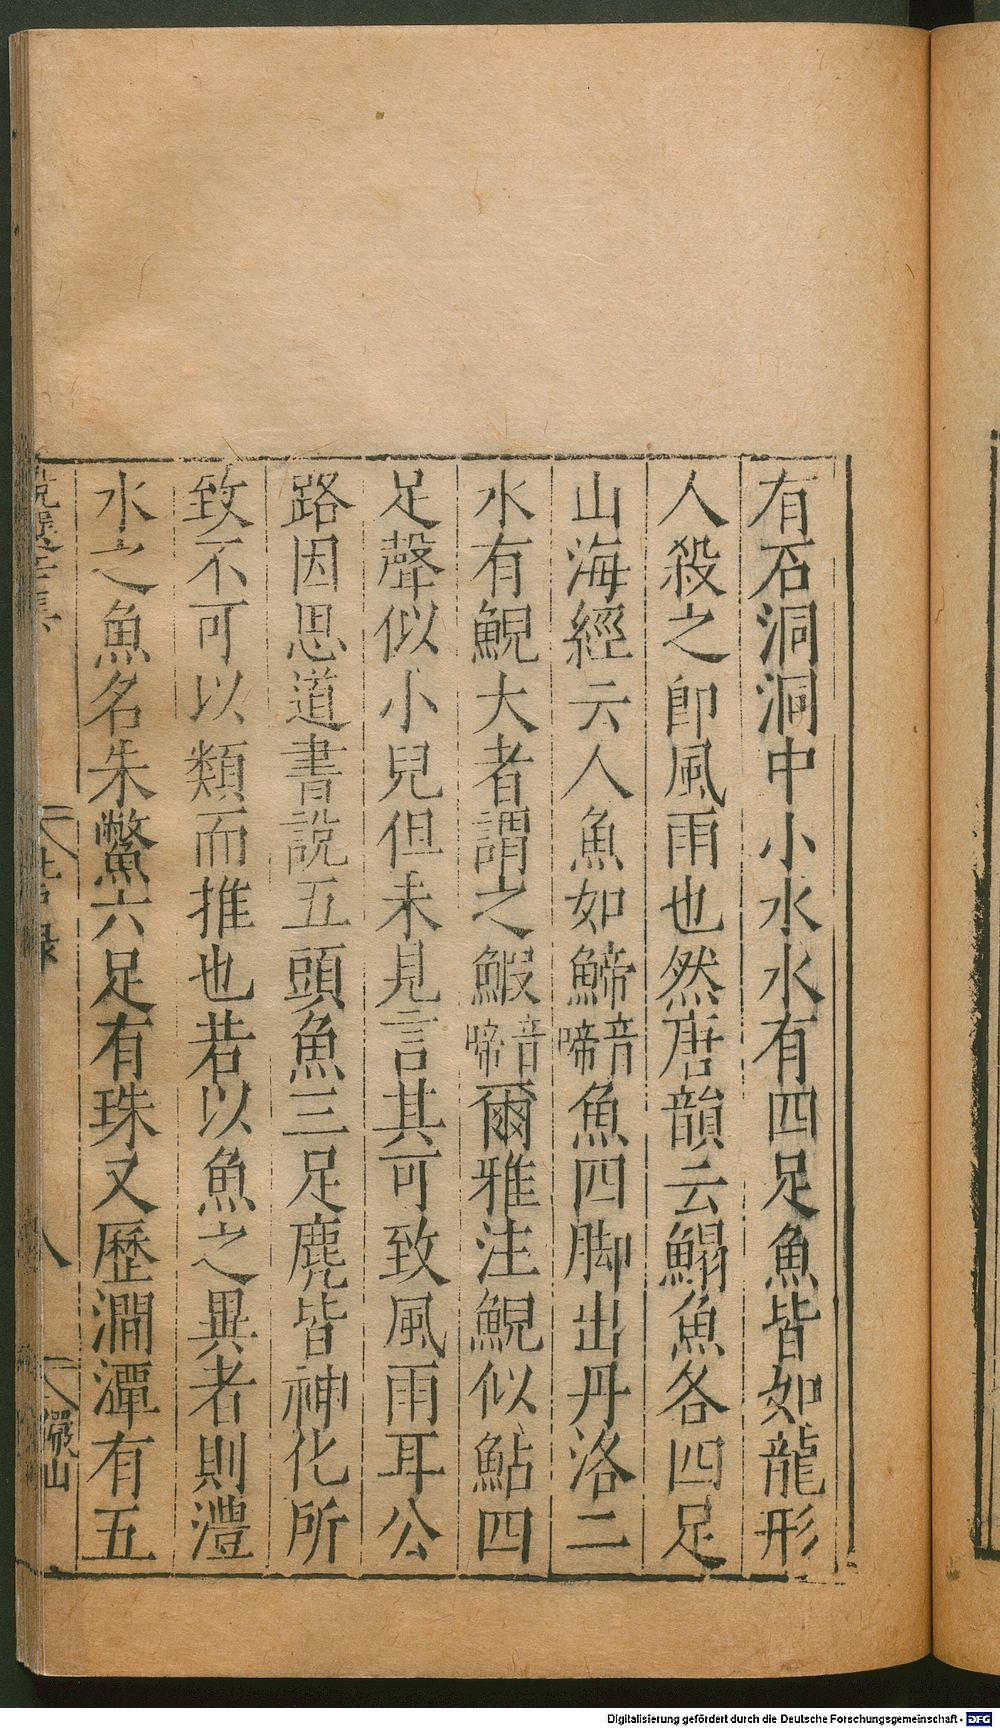 有石洞洞中小水水有四足魚皆如龍形
人殺之即風雨也然唐韻云鰨魚各四足
山海經云人魚如鯑音啼魚四脚出丹洛二
水有鯢大者謂之鰕音啼爾雅注鯢似鮎四
足聲似小兒但未見言其可致風雨耳公
路因思道書說五頭魚三足麂皆神化所
致不可以類而推也若以魚之異者則澧
水之魚名朱鱉六足有珠又歷澗潭有五
八
儼山
Digitalisierung gefördert durch die Deutsche Forschungsgemeinschaft - DFG